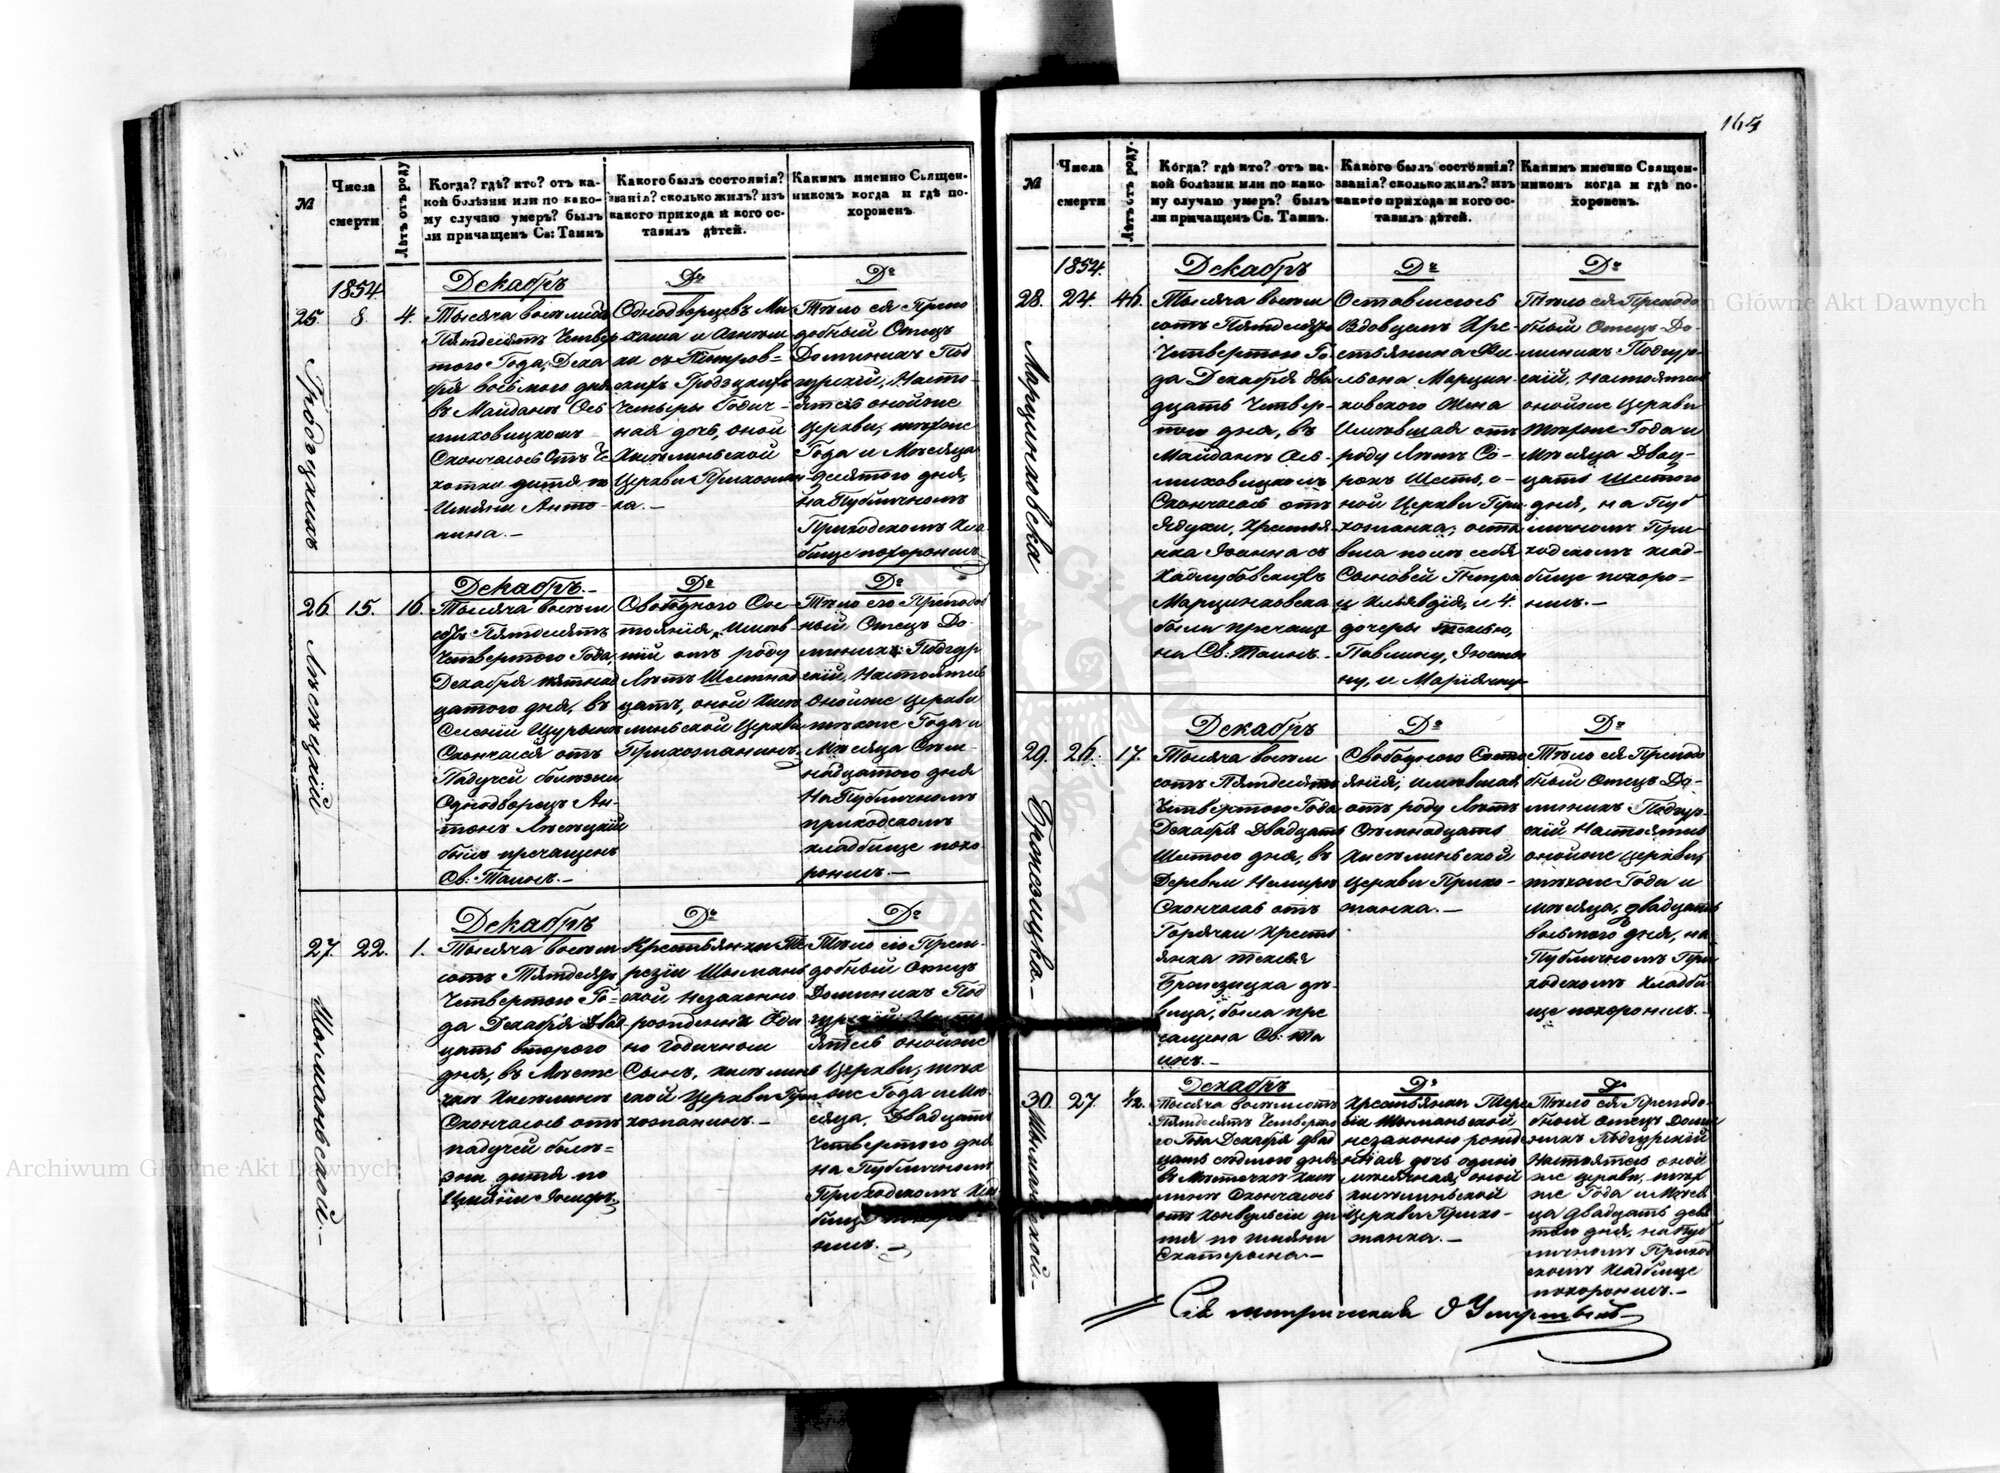 №
Числа
смерти
Лѣтъ отъ роду
Когда? гдѣ? кто? отъ ка-
кой болѣзни или по како-
му случаю умеръ? былъ
ли причащенъ Св: Таинъ
Какого былъ состоянія?
званія? сколько жилъ? изъ
какого прихода и кого ос-
тавилъ дѣтей.
Какимъ именно Священ-
никомъ когда и гдѣ по-
хороненъ.
1854
25.
8.
4.
Декабрь
Тысяча восемьсотъ
Пятдесятъ Четвер
того Года, Дека
бря восьмого дня
въ Майданѣ Ось
миховицкомъ
Скончалось отъ
дитя по
Имяни Анто
нина.—
До
Однодворцевъ
и
съ Петров-
скихъ Гродзицкихъ
Четыры Годич-
ная дочь, оной
Киселиньской
Церкви Прихожан
ка.—
До
Тѣло ея Препо
добный Отецъ
Доминикъ Под
гурскій, Насто-
ятель онойже
Церкви, тогоже
Года и Мѣсяца
десятого дня,
на Публичномъ
Приходскомъ Кла
бище похоронилъ.
26.
15.
16.
Декабрь.—
Тысяча восемь
сотъ Пятдесятъ
Четвертого Года,
Декабря пятнад
цатого дня, въ
Скончался отъ
Падучей болезни
Однодворецъ Ан-
тонъ Лѣсецкій
былъ пречащенъ
Св: Таинъ.—
До
Свободного Сос-
тоянія, имѣв
шій отъ роду
Лѣтъ Шестнад
цать, оной Кисе
линьской Церкви
Прихожанинъ.
До
Тѣло его Преподоб
ный Отецъ До-
миникъ Подгур
скій, Настоятель
онойже церкви
тогоже Года и
Мѣсяца Сем-
надцатого дня
на Публичномъ
приходскомъ
кладбище похо-
ронилъ.—
27.
22.
1.
Декабрь
Тысяча восемь
сотъ Пятдесятъ
Четвертого Го-
да Декабря двад
цать второго
дня, въ Мѣсте
чкѣ Киселинѣ
Скончалось отъ
падучей болѣ-
зни дитя по
Имяни Іосифъ
До
Крестьянки Те
резіи Шоймань
ской незаконно
рожденны Одни
но годичной
Сынъ, Киселинь
ской Церкви При
хожанинъ.—
До
Тѣло его Препо-
добный Отецъ
Доминикъ Под
гурскій Насто
ятель онойже
Церкви, тогоже
Года и Мѣ-
сяца, Двадцать
Четвертого дня
на Публичномъ
Приходскомъ Клад
бище похоро
нилъ.—
164
№
Числа
смерти
Лѣтъ отъ роду.
Когда? гдѣ? кто? отъ ка-
кой болѣзни или по како-
му случаю умеръ? былъ
ли причащенъ Св. Таинъ.
Какого былъ состоянія?
званія? сколько жилъ? изъ
какого прихода и кого ос-
тавилъ дѣтей.
Какимъ именно Священ-
никомъ когда и гдѣ по-
хороненъ.
1854.
28.
24.
46.
Марцинковска
Декабрь
Тысяча восемь
сотъ Пятдесятъ
Четвертого Го-
да Декабря два
дцать Четвер-
того дня, въ
Майданѣ Ось-
миховицкомъ
Скончалась отъ
Ядухи, Крестья
нка Іоанна съ
Кадлубовскихъ
Марцинковска
были пречаще
на Св: Таинъ.
До
Оставшегось
Вдовцемъ Кре-
стьянина
Марцин-
ковского Жена
Имѣвшая отъ
роду Лѣтъ Со-
рокъ Шесть, о-
ной Церкви При
хожанка, оста
вила полъ себя
Сыновей Петра
и Клявдія, и 4.
дочеры Теклю,
Павлину, Юсти
ну, и Маріянну
До
Тѣло ея Преподо
бный Отецъ До-
миникъ Подгур-
скій, Настоятель
онойже Церкви
тогоже Года и
Мѣсяца Двад-
цать Шестого
дня, на Пуб
личномъ При
ходскомъ клад-
бище похоро-
нилъ.—
29.
26.
17.
Декабрь
Тысяча восемь
сотъ Пятдесятъ
Четвертого Года
Декабря Двадцать
Шестого дня, въ
Деревни
Скончалась отъ
Горячки Кресть
янка Текля
дѣ-
вица, была пре
чащена Св. Та
инъ.—
До
Свободного Состо
янія, имѣвшая
отъ роду Лѣтъ
Семнадцать
Киселиньской
Церкви Прихо-
жанка.—
До
Тѣло ея Препо
бный Отецъ До-
миникъ Подгур-
скій Настоятель
онойже Церкви,
тогоже Года и
мѣсяца, двадцать
восьмого дня, на
Публичномъ При
ходскомъ Кладби
ще похоронилъ.—
30.
27.
1/12.
Декабрь
Тысяча восемьсотъ
Пятдесятъ Четверто
го Года Декабря двад
цать седмого дня
въ Мѣстечкѣ Кисе
линѣ Скончалось
отъ Конвульсіи ди
тя по имяни
Екатерына.—
До
Крестьянки Терез
іи Шойманьской
незаконно рожд
ѣнная дочь одино
мѣсячная, оной
Киселиньской
Церкви Прихо-
жанка.—
До
Тѣло ея Преподо-
бный Отецъ Доми
никъ Подгурскій
Настоятель оной
же Церкви, того
же Года и Мѣся
ца двадцать девя
того дня, на Пуб
личномъ Приход
скомъ Кладбище
похоронилъ.—
Сія метрическая О Умершыхъ
Archiwum Główne Akt Dawnych
Archiwum Główne Akt Dawnych